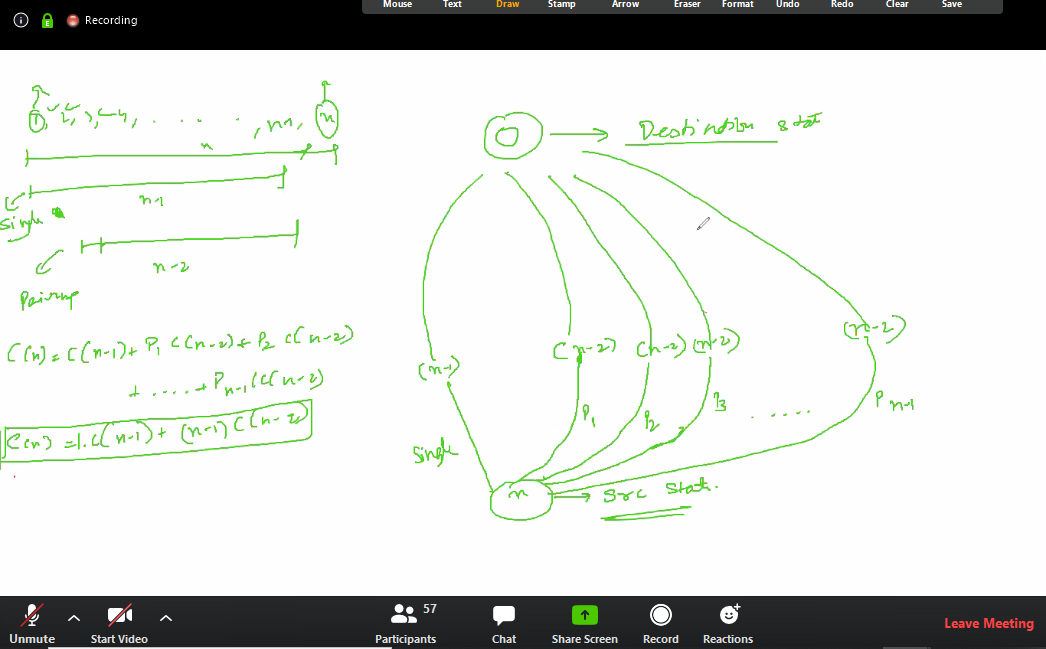 Mouse Text Draw Stamp Arrow Eraser Format Undo Redo Clear Save
E Recording
1, 2, 3, . . . . . . , n-1, n
n
n-1
Single
n-2
Pairup
C(n) = C(n-1) + P1 C(n-2) + P2 C(n-2)
+ ..... + Pn-1 C(n-2)
C(n) = 1.C(n-1) + (n-1) C(n-2)
0 → Destination stat
(n-1) (n-2) (n-2) (n-2) (n-2)
Single P1 P2 P3 ..... Pn-1
n → src stat.
57
Unmute Start Video Participants Chat Share Screen Record Reactions
Leave Meeting